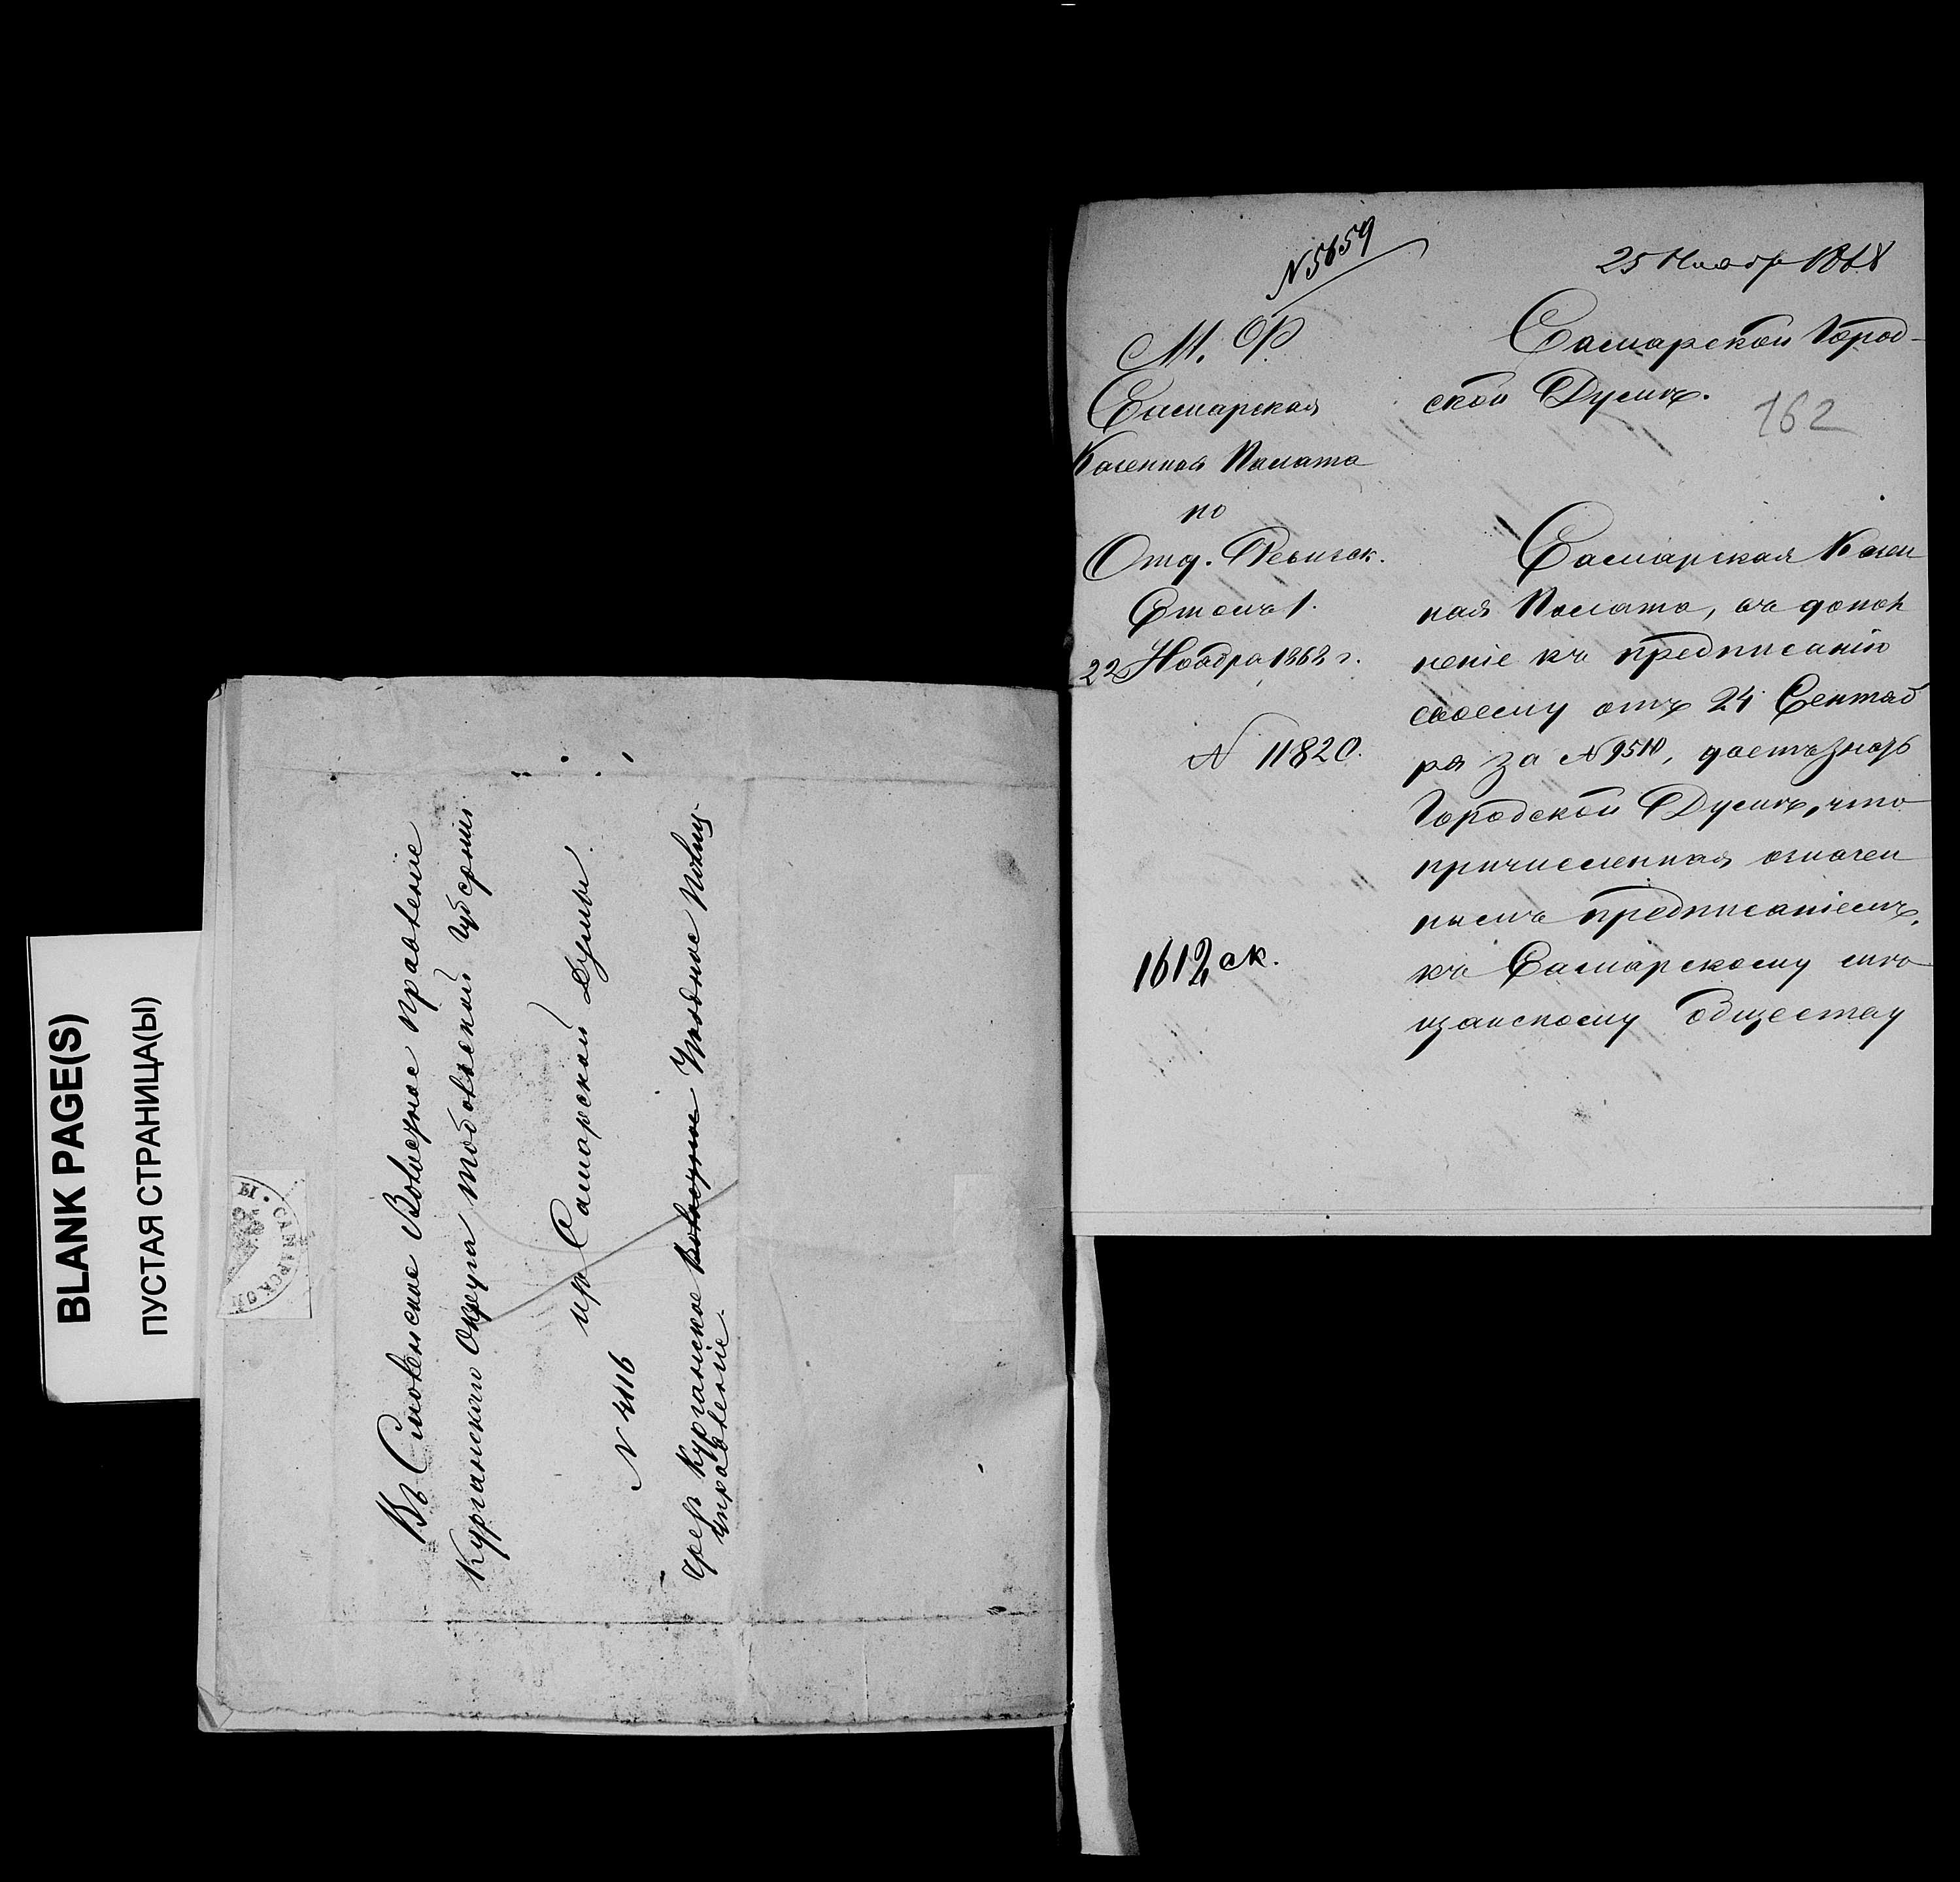 BLANK PAGE(S)
ПУСТАЯ СТРАНИЦА(Ы)
Ы • САМАРСКОЙ
Въ Смолинское Волостное правленіе
Курганскаго Округа Тобольской губерніи
изъ Самарской Думы.
N 4116
чрез Курганское Волостное Уѣздное Полиц
управленіе.
N 5659
25 Ноября 1868
М. Ф.
Самарская
Казенная Палата
по
Отд. Ревизск.
Столъ 1.
22 Ноября 1868 г.
N 11820.
1612 ск.
Самарской Город-
ской Думѣ.
162
Самарская Казен
ная Палата, въ допол
неніе къ предписанію
своему отъ 24 Сентяб
ря за N 9510, даетъ знать
Городской Думѣ, что
причисленная означен
нымъ предписаніемъ,
къ Самарскому мѣ
щанскому обществу